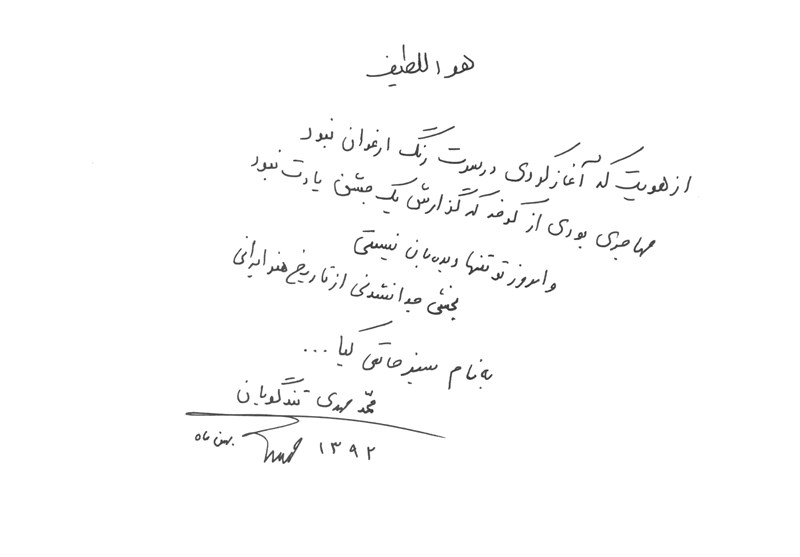 هو اللطیف
از هویت که آغاز کردی درست رنگ ارغوان نبود
مهاجری بودی از کوفه که گزارش یک جشن یادت نبود
و امروز تو تنها دیده‌بان نیستی
بخشی جدانشدنی از تاریخ هنر ایرانی
به نام سبز حاتمی کیا ...
محمد مهدی تندگویان
۱۳۹۲ بهمن ماه